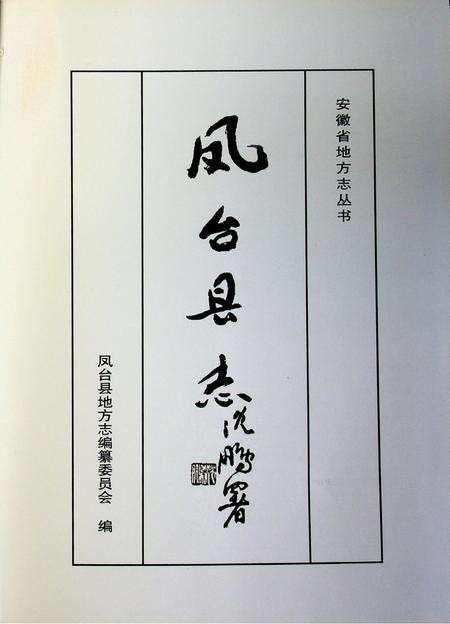 安徽省地方志丛书
凤台县志
沈鹏署
凤台县地方志编纂委员会 编